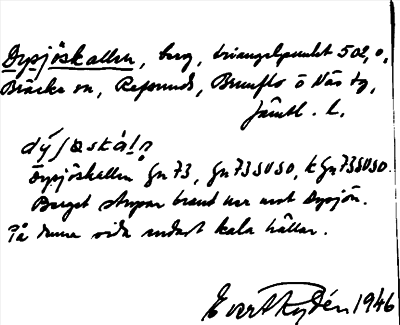 Dysjöskallen, berg, triangelpunkt 502,0,
Bräcke sn, Refsunds, Brunflo o Näs tg,
Jämtl. l.
dýſøskál̄
Dysjöskallen Gn 73, Gn 73SVSO, k Gn 73SVSO.
Berget stupar brant ner mot Dysjön.
På denna sida endast kala hällar.
Evert Rydén 1946